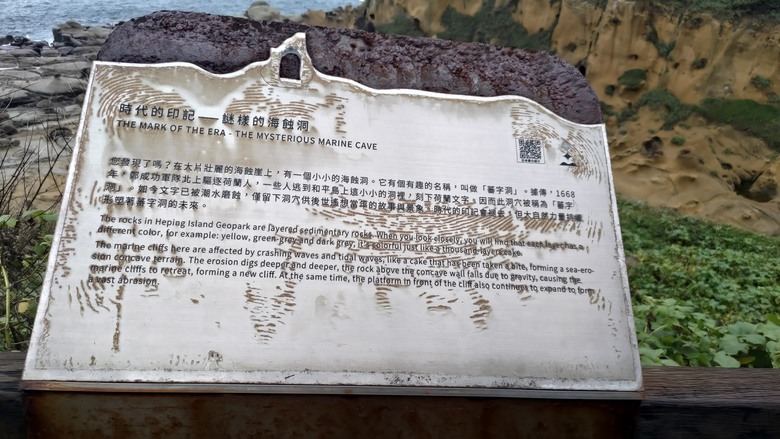 時代的印記 — 謎樣的海蝕洞
THE MARK OF THE ERA - THE MYSTERIOUS MARINE CAVE
您發現了嗎？在大片壯麗的海蝕崖上，有一個小小的海蝕洞。它有個有趣的名稱，叫做「蕃字洞」。據傳，1668
年，鄭成功軍隊北上驅逐荷蘭人，一些人逃到和平島上這小小的洞裡，刻下荷蘭文字，因而此洞穴被稱為「蕃字
洞」。如今文字已被潮水磨蝕，僅留下洞穴供後世遙想當年的故事與景象。時代的印記會褪去，但大自然力量持續
形塑著蕃字洞的未來。
The rocks in Heping Island Geopark are layered sedimentary rocks. When you look closely, you will find that each layer has a
different color, for example: yellow, green-grey and dark grey, it's colorful just like a thousand-layers cake.
The marine cliffs here are affected by crashing waves and tidal waves, like a cake that has been taken a bite, forming a sea-ero-
sion concave terrain. The erosion digs deeper and deeper, the rock above the concave wall falls due to gravity, causing the
marine cliffs to retreat, forming a new cliff. At the same time, the platform in front of the cliff also continues to expand to form
a vast abrasion.